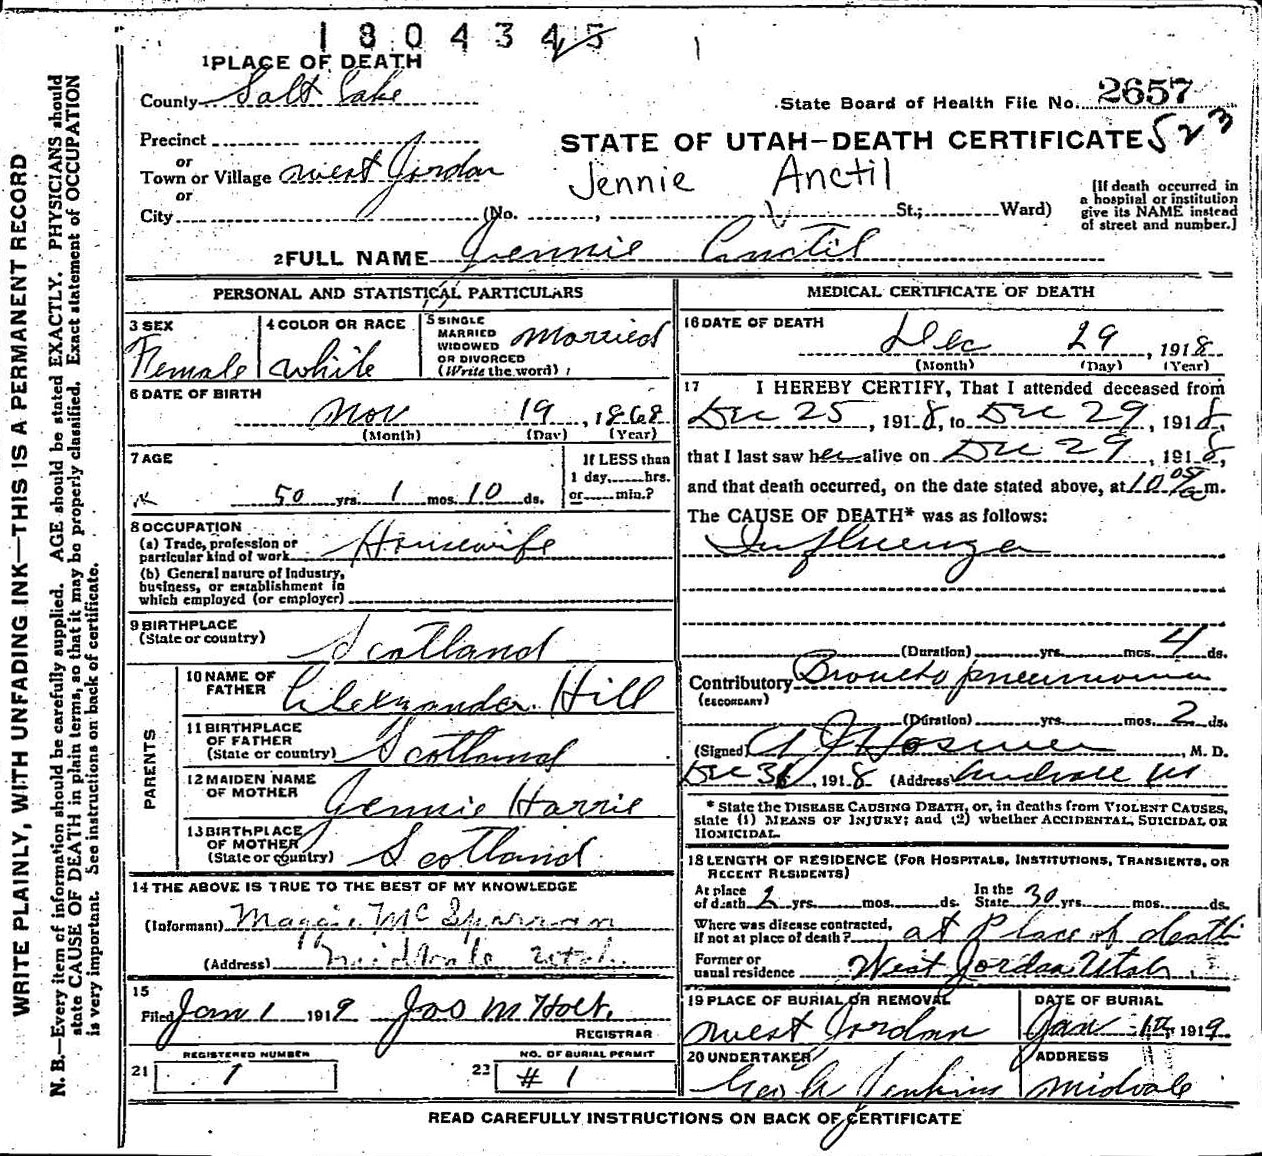 1804345
1 PLACE OF DEATH
County Salt Lake
State Board of Health File No. 2657
Precinct
STATE OF UTAH—DEATH CERTIFICATE 523
or
Town or Village West Jordan
Jennie Anctil
or
City (No. , St.; Ward)
[If death occurred in a hospital or institution give its NAME instead of street and number.]
2 FULL NAME Jennie Anctil
PERSONAL AND STATISTICAL PARTICULARS
3 SEX
Female
4 COLOR OR RACE
White
5 SINGLE
MARRIED
WIDOWED
OR DIVORCED
(Write the word)
Married
6 DATE OF BIRTH
Nov 19, 1868
(Month) (Day) (Year)
7 AGE
50 yrs. 1 mos. 10 ds.
If LESS than
1 day, hrs.
or min.?
8 OCCUPATION
(a) Trade, profession or
particular kind of work Housewife
(b) General nature of Industry,
business, or establishment in
which employed (or employer)
9 BIRTHPLACE
(State or country) Scotland
PARENTS
10 NAME OF
FATHER Alexander Hill
11 BIRTHPLACE
OF FATHER
(State or country) Scotland
12 MAIDEN NAME
OF MOTHER Jennie Harris
13 BIRTHPLACE
OF MOTHER
(State or country) Scotland
14 THE ABOVE IS TRUE TO THE BEST OF MY KNOWLEDGE
(Informant) Maggie McSparran
(Address) Midvale Utah
15
Filed Jan 1 1919 Jos M Holt.
REGISTRAR
REGISTERED NUMBER
21 1
NO. OF BURIAL PERMIT
22 # 1
MEDICAL CERTIFICATE OF DEATH
16 DATE OF DEATH
Dec 29, 1918
(Month) (Day) (Year)
17 I HEREBY CERTIFY, That I attended deceased from
Dec 25, 1918, to Dec 29, 1918,
that I last saw her alive on Dec 29, 1918,
and that death occurred, on the date stated above, at 10 05 a m.
The CAUSE OF DEATH* was as follows:
Influenza
(Duration) yrs. mos. 4 ds.
Contributory Broncho pneumonia
(SECONDARY)
(Duration) yrs. mos. 2 ds.
(Signed) M. D.
Dec , 1918 (Address) Midvale Ut
* State the DISEASE CAUSING DEATH, or, in deaths from VIOLENT CAUSES,
state (1) MEANS OF INJURY; and (2) whether ACCIDENTAL, SUICIDAL OR
HOMICIDAL.
18 LENGTH OF RESIDENCE (FOR HOSPITALS, INSTITUTIONS, TRANSIENTS, OR
RECENT RESIDENTS)
At place
of death 2 yrs. mos. ds.
In the
State 30 yrs. mos. ds.
Where was disease contracted,
if not at place of death? at Place of death
Former or
usual residence West Jordan, Utah
19 PLACE OF BURIAL OR REMOVAL
West Jordan
DATE OF BURIAL
Jan 1919
20 UNDERTAKER
Geo A Jenkins
ADDRESS
Midvale
READ CAREFULLY INSTRUCTIONS ON BACK OF CERTIFICATE
WRITE PLAINLY, WITH UNFADING INK—THIS IS A PERMANENT RECORD
N. B.—Every item of information should be carefully supplied. AGE should be stated EXACTLY. PHYSICIANS should
state CAUSE OF DEATH in plain terms, so that it may be properly classified. Exact statement of OCCUPATION
is very important. See instructions on back of certificate.